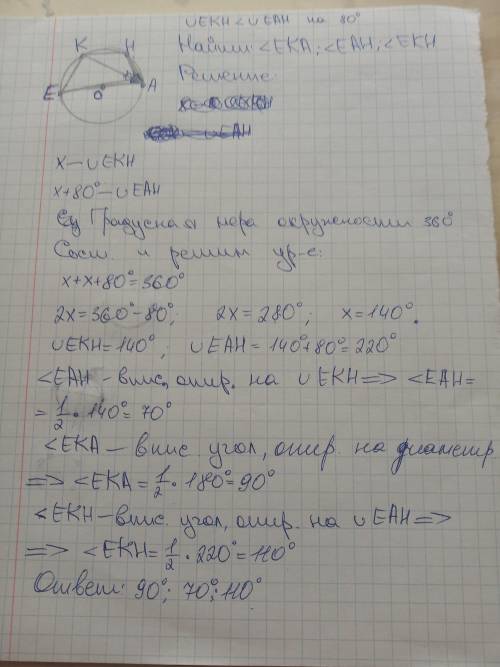 ∪EKH<∪EAH на 80°
Найти: <EKA; <EAH; <EKH
Решение:
∪EAH
K H
E O A
x — ∪EKH
x+80° — ∪EAH
Градусная мера окружности 360°
Сост. и решим ур-е:
x+x+80°=360°
2x=360°-80°; 2x=280°; x=140°.
∪EKH=140°; ∪EAH=140°+80°=220°
<EAH - впис, опир. на ∪EKH=> <EAH=
=1/2·140°=70°
<EKA — впис. угол, опир. на диаметр
=> <EKA=1/2·180°=90°
<EKH — впис. угол, опир. на ∪EAH=>
=> <EKH=1/2·220°=110°
Ответ: 90°; 70°; 110°